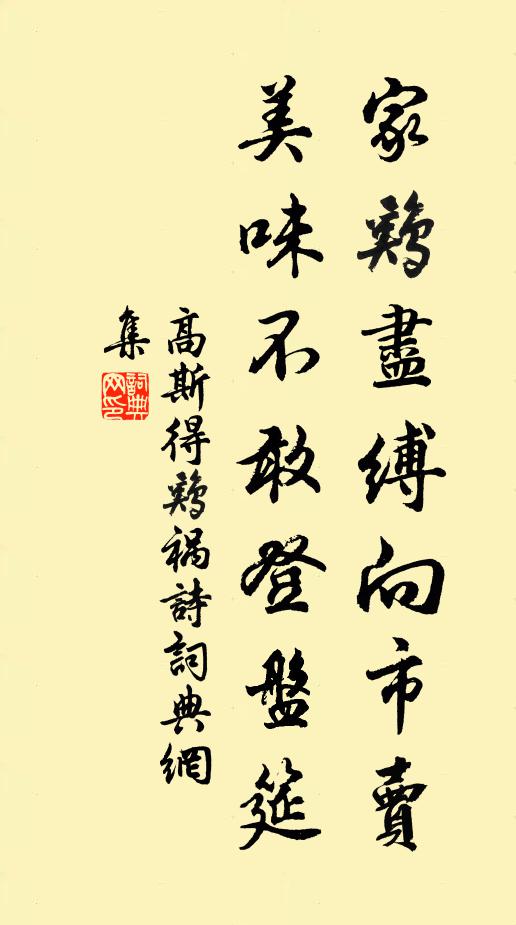 家鷄盡縛向市賣
美味不敢登盤筵
高斯得鷄禍詩詞典網
集
詞典网印